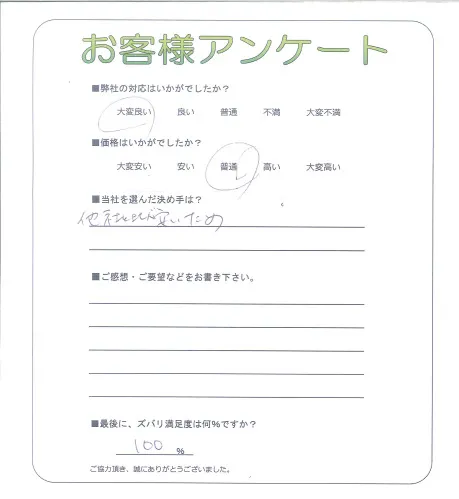 お客様アンケート
■弊社の対応はいかがでしたか？
大変良い 良い 普通 不満 大変不満
■価格はいかがでしたか？
大変安い 安い 普通 高い 大変高い
■当社を選んだ決め手は？
他社比が安いため
■ご感想・ご要望などをお書き下さい。
■最後に、ズバリ満足度は何％ですか？
100 ％
ご協力頂き、誠にありがとうございました。